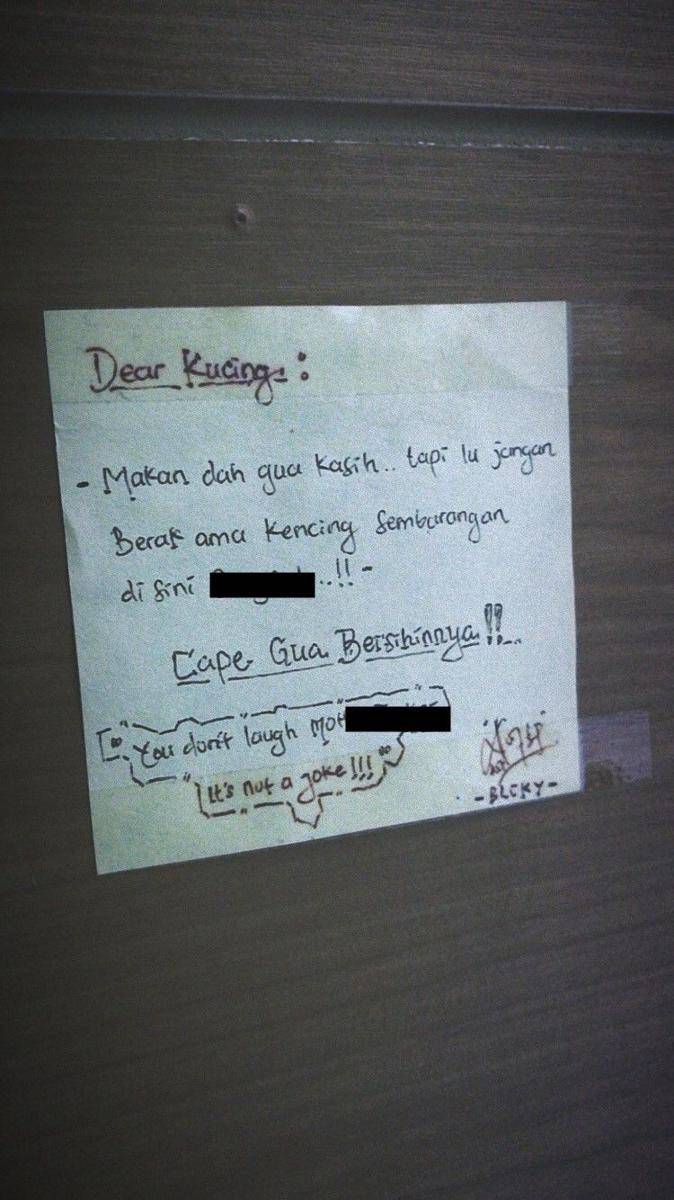 Dear Kucing :
- Makan dah gua kasih.. tapi lu jangan
Berak ama kencing Sembarangan
di sini ..!! -
Cape Gua Bersihinnya !!
You don't laugh
It's not a joke !!!
- BLCKY -